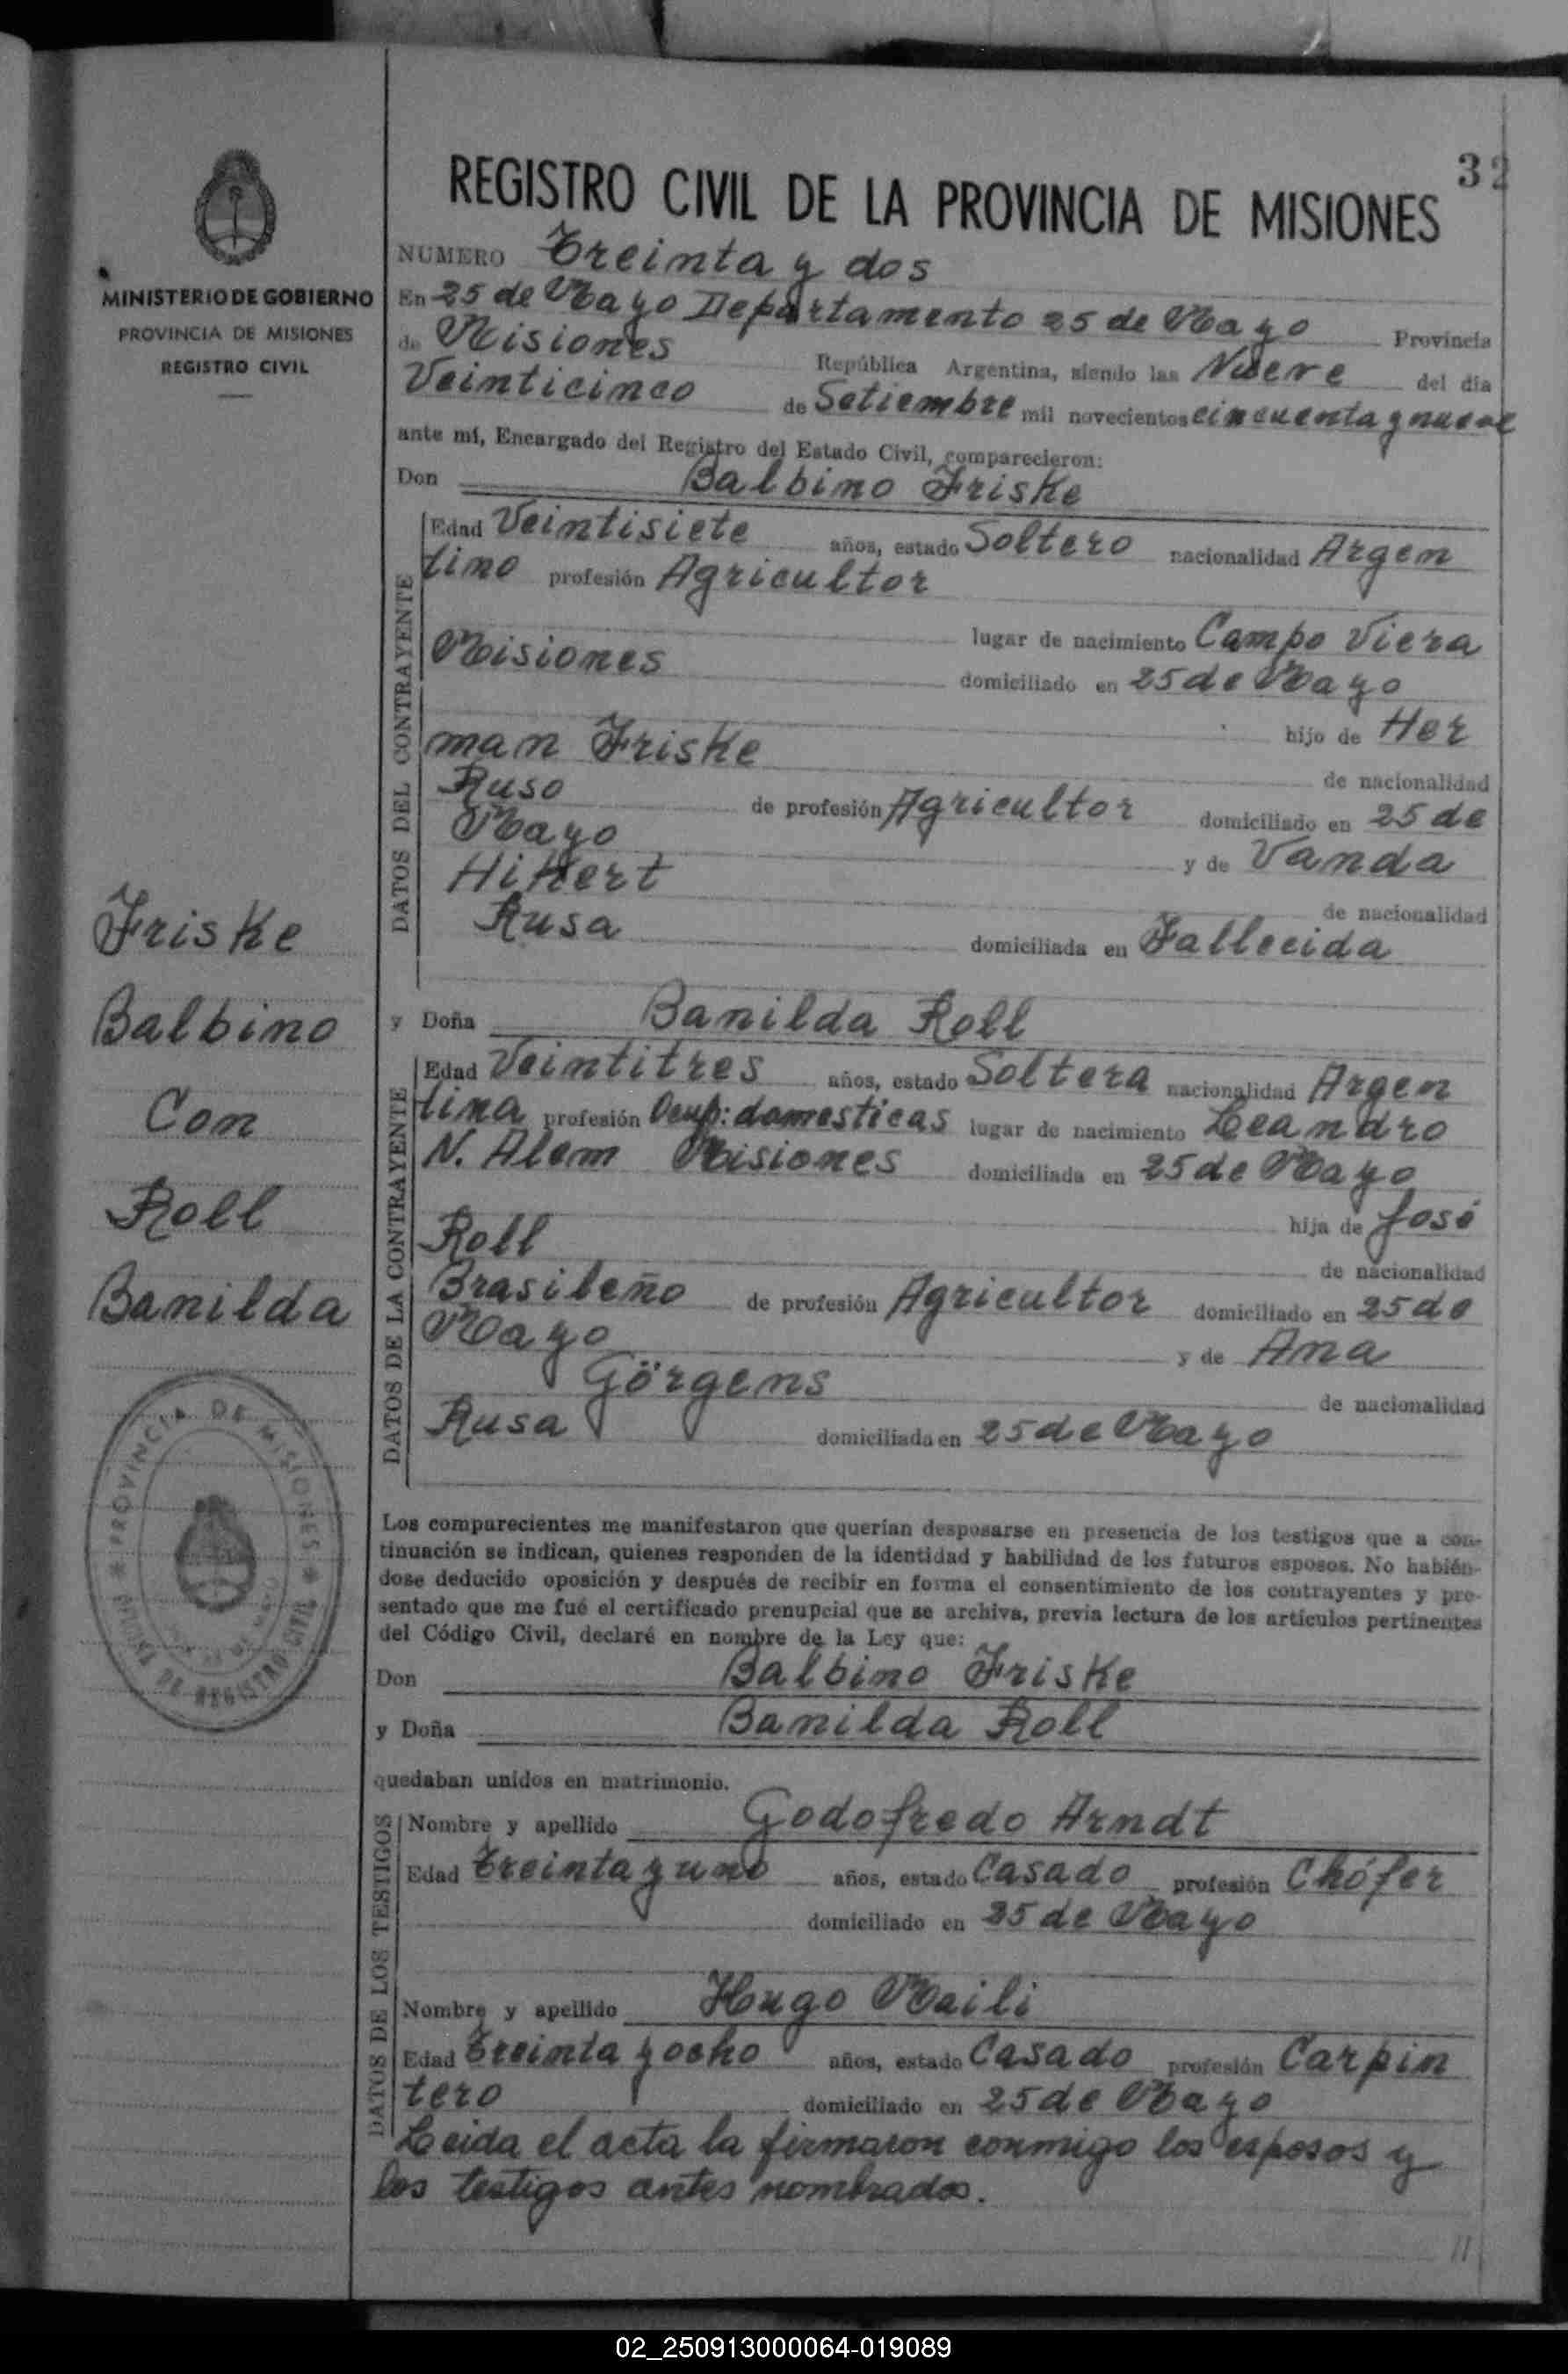 32
REGISTRO CIVIL DE LA PROVINCIA DE MISIONES
MINISTERIO DE GOBIERNO
PROVINCIA DE MISIONES
REGISTRO CIVIL
NUMERO Treinta y dos
En 25 de Mayo Departamento 25 de Mayo Provincia
de Misiones República Argentina, siendo las Nueve del día
Veinticinco de Setiembre mil novecientos cincuenta y nueve
ante mí, Encargado del Registro del Estado Civil, comparecieron:
Don Balbino Friske
DATOS DEL CONTRAYENTE
Edad Veintisiete años, estado Soltero nacionalidad Argen
tino profesión Agricultor
lugar de nacimiento Campo Viera
Misiones domiciliado en 25 de Mayo
hijo de Her
man Friske de nacionalidad
Ruso de profesión Agricultor domiciliado en 25 de
Mayo y de Vanda
Hikert de nacionalidad
Rusa domiciliada en Fallecida
y Doña Banilda Roll
DATOS DE LA CONTRAYENTE
Edad Veintitres años, estado Soltera nacionalidad Argen
tina profesión Ocup: domesticas lugar de nacimiento Leandro
N. Alem Misiones domiciliada en 25 de Mayo
hija de José
Roll de nacionalidad
Brasileño de profesión Agricultor domiciliado en 25 de
Mayo y de Ana
Görgens de nacionalidad
Rusa domiciliada en 25 de Mayo
Friske
Balbino
Con
Roll
Banilda
PROVINCIA DE MISIONES
Los comparecientes me manifestaron que querían desposarse en presencia de los testigos que a con-
tinuación se indican, quienes responden de la identidad y habilidad de los futuros esposos. No habién-
dose deducido oposición y después de recibir en forma el consentimiento de los contrayentes y pre-
sentado que me fué el certificado prenupcial que se archiva, previa lectura de los artículos pertinentes
del Código Civil, declaré en nombre de la Ley que:
Don Balbino Friske
y Doña Banilda Roll
quedaban unidos en matrimonio.
DATOS DE LOS TESTIGOS
Nombre y apellido Godofredo Arndt
Edad Treinta y uno años, estado Casado profesión Chófer
domiciliado en 25 de Mayo
Nombre y apellido Hugo Maili
Edad Treinta y ocho años, estado Casado profesión Carpin
tero domiciliado en 25 de Mayo
Leida el acta la firmaron conmigo los esposos y
los testigos antes nombrados.
02_250913000064-019089